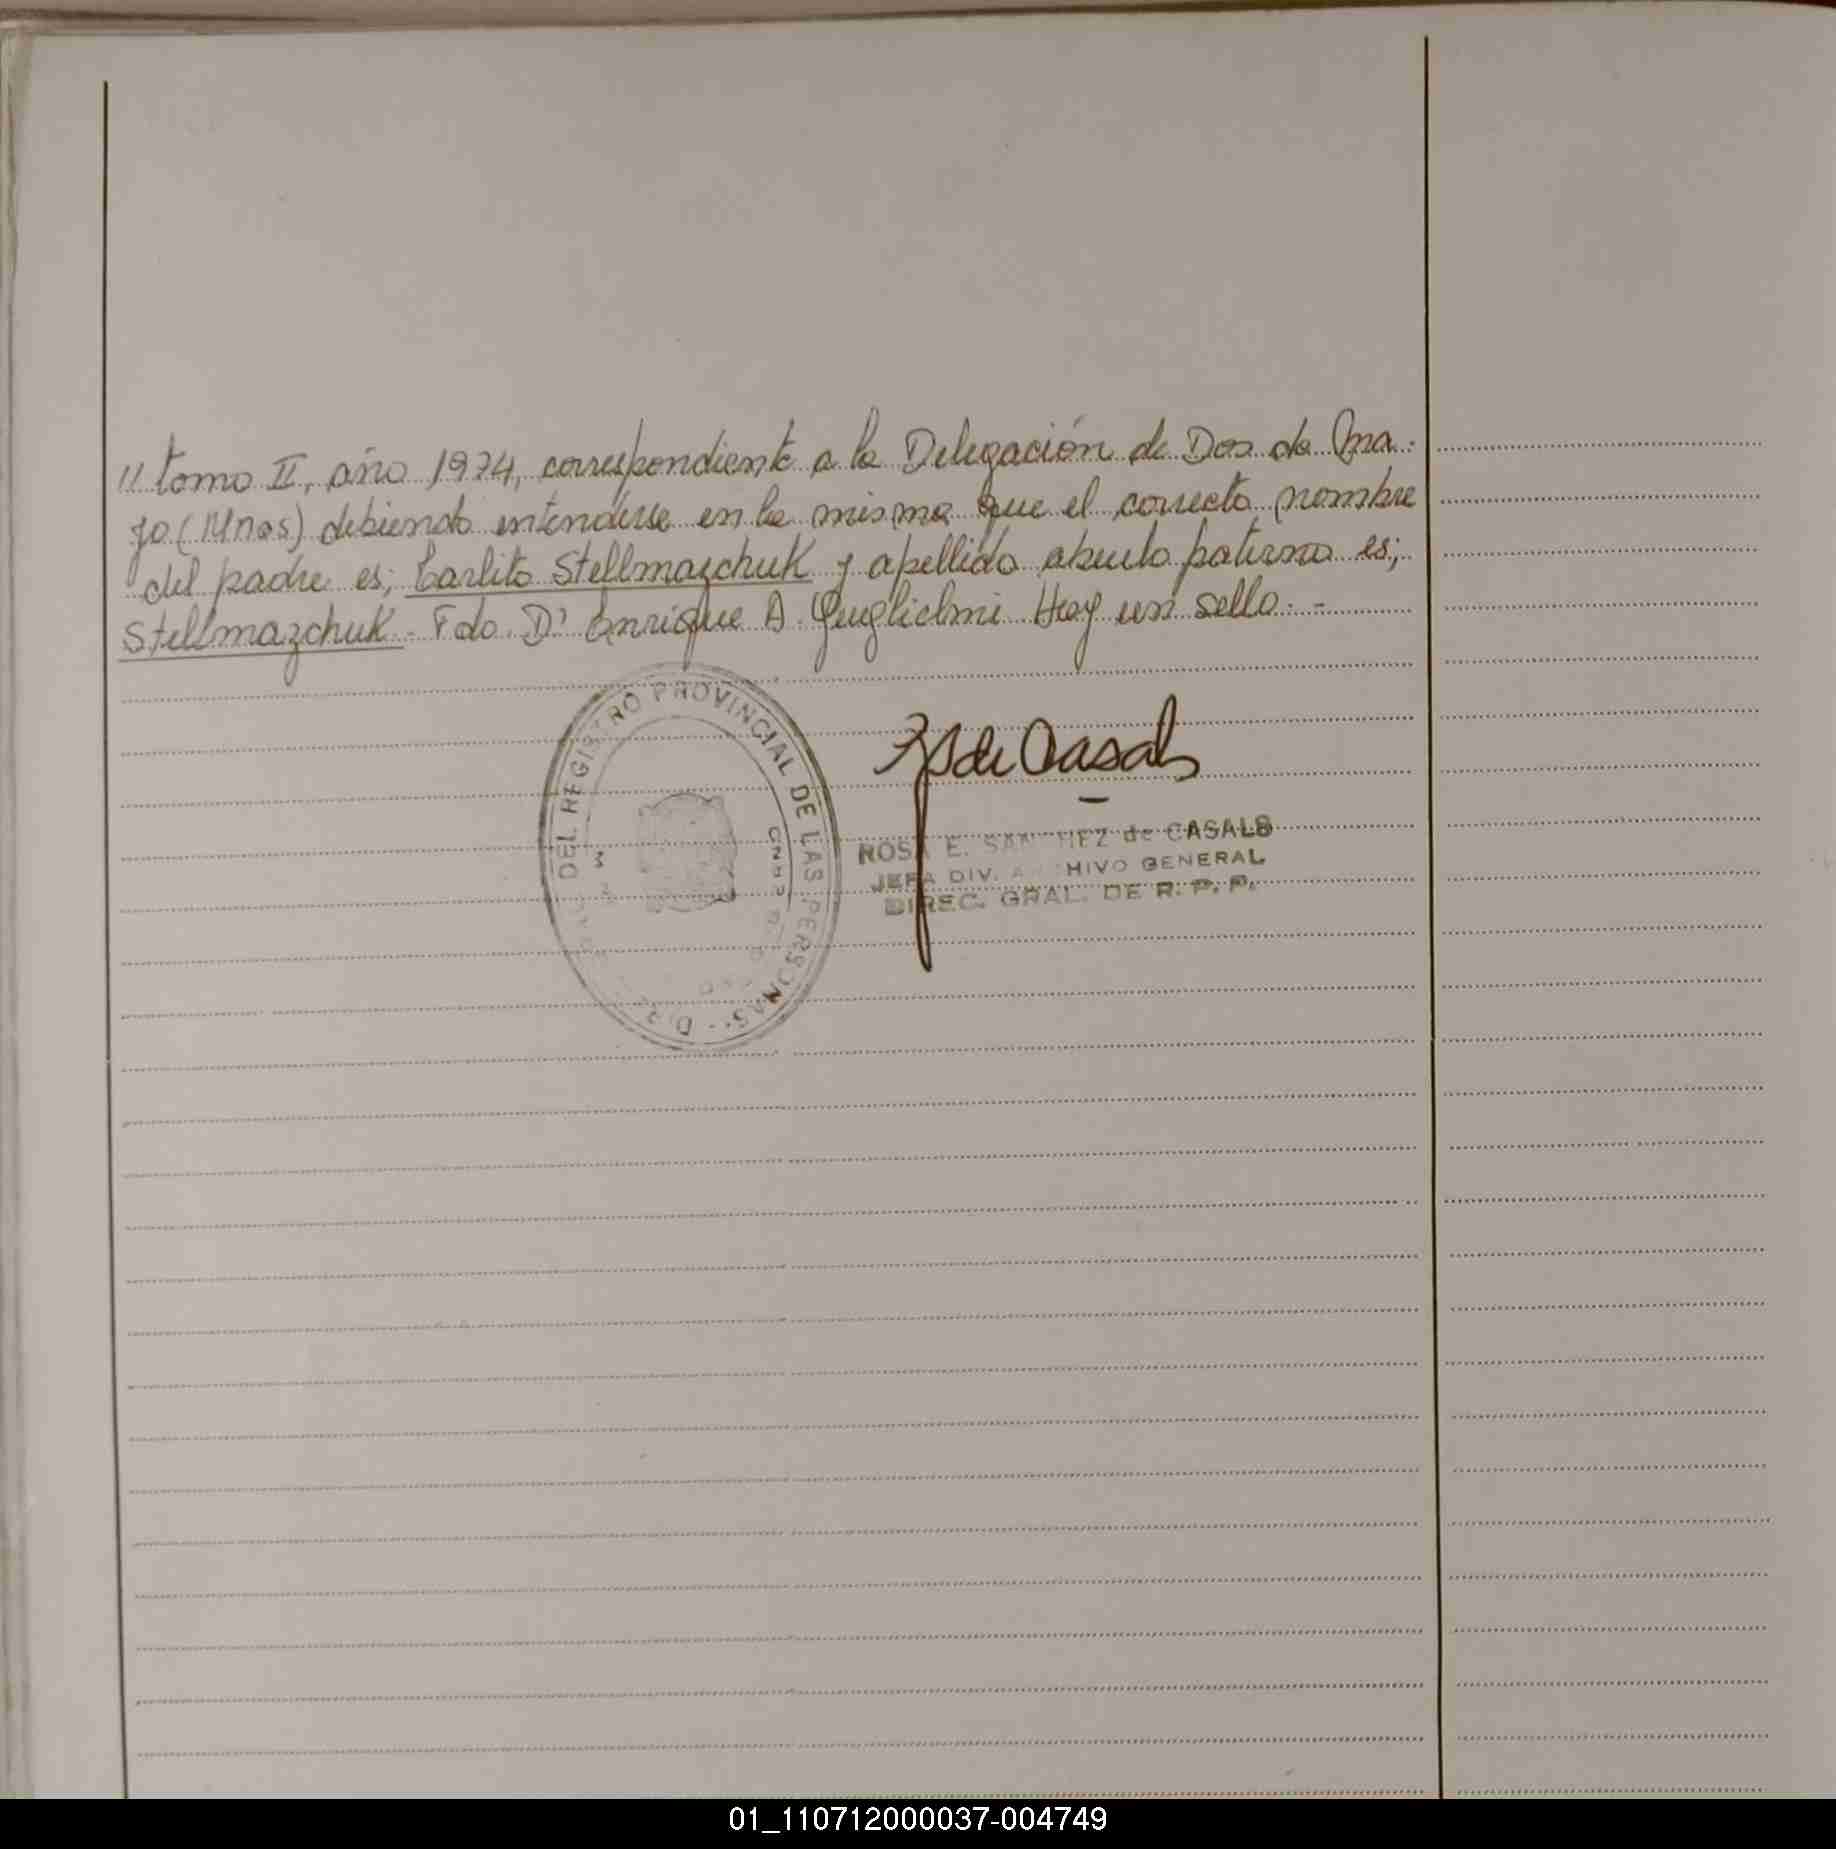 // tomo II, año 1974, correspondiente a la Delegación de Dos de Ma-
yo (Mnes) debiendo entenderse en la misma que el correcto nombre
del padre es; Carlito Stellmazchuk y apellido abuelo paterno es;
Stellmazchuk. Fdo. Dr Enrique A. Guglielmi Hay un sello. -
DEL REGISTRO PROVINCIAL DE LAS PERSONAS
de Casals
ROSA E. SANCHEZ de CASALS
JEFA DIV. ARCHIVO GENERAL
DIREC. GRAL. DE R. P. P.
01_110712000037-004749